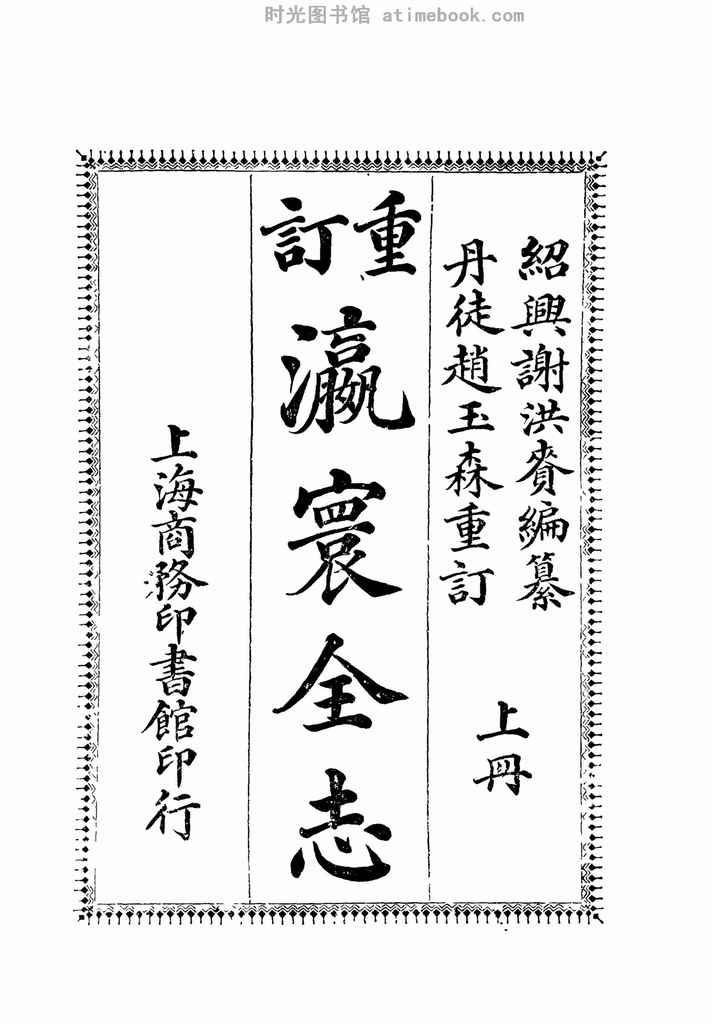 时光图书馆 atimebook.com
紹興謝洪賚編纂
丹徒趙玉森重訂
上冊
重訂
瀛寰全志
上海商務印書館印行